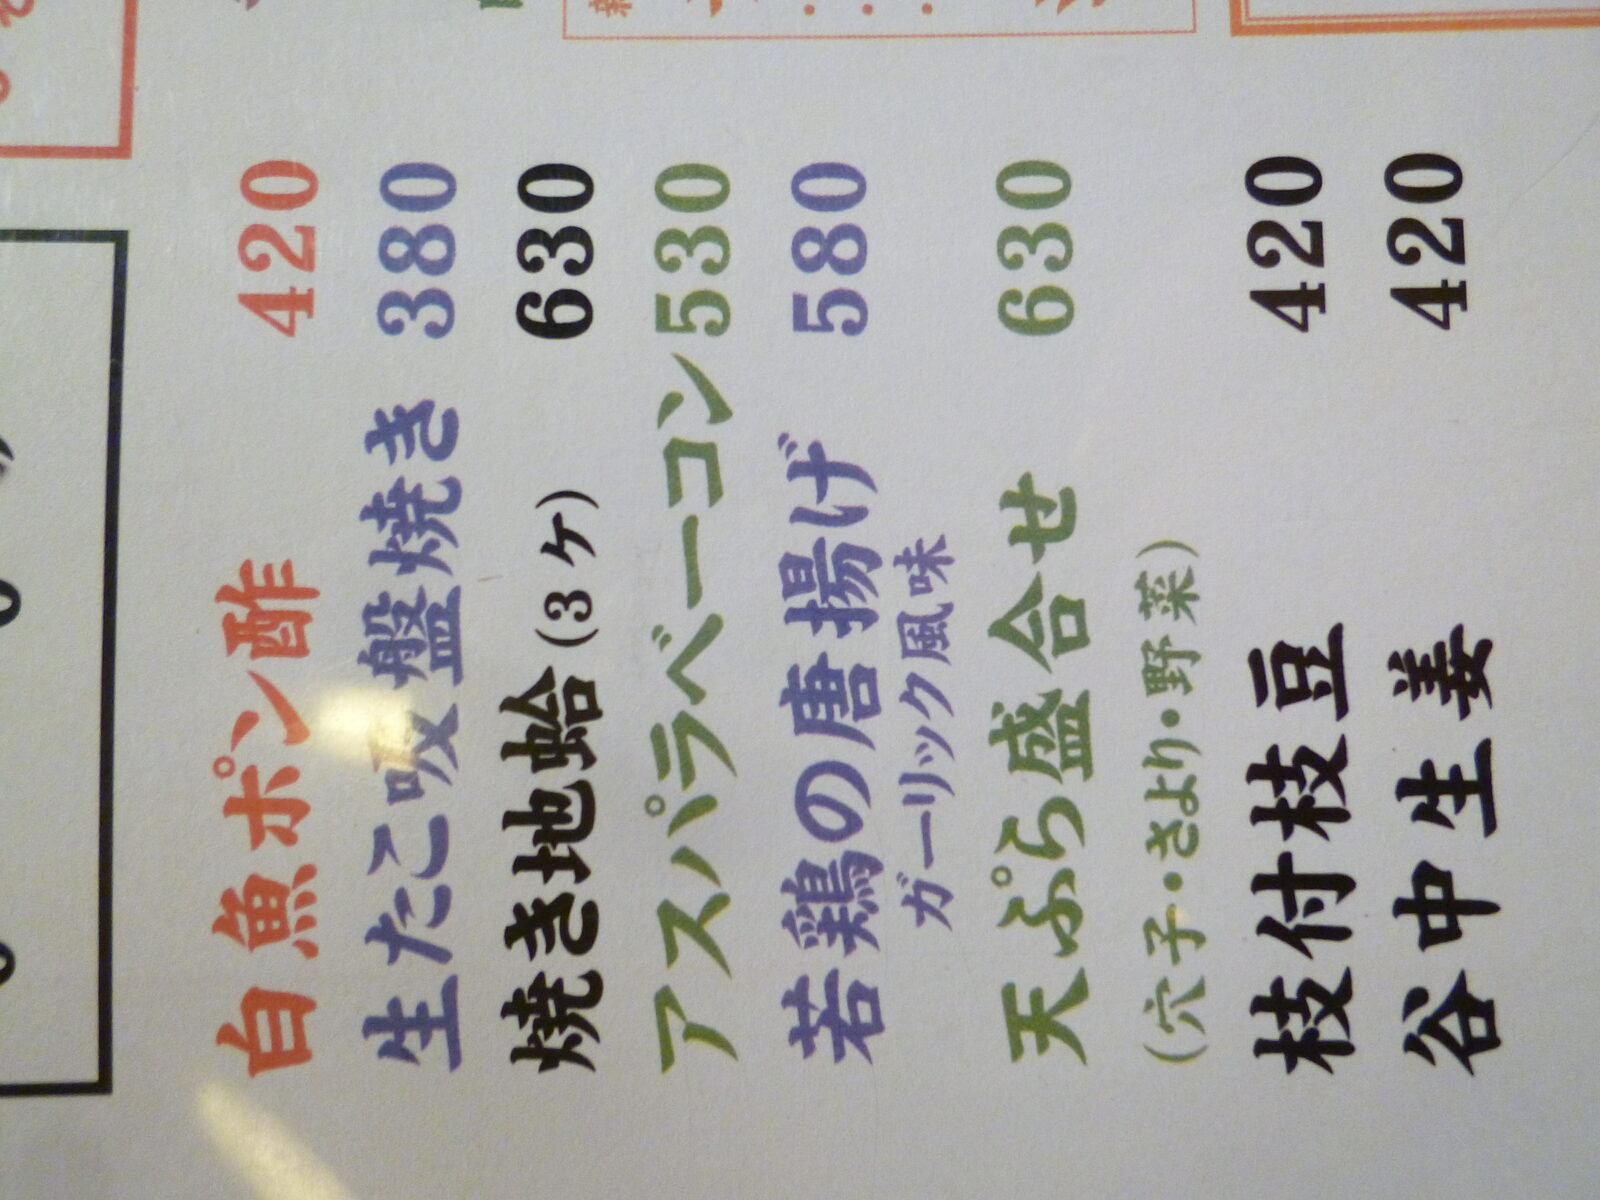 白魚ポン酢 420
生たこ吸盤焼き 380
焼き地蛤(3ヶ) 630
アスパラベーコン 530
若鶏の唐揚げ 580
ガーリック風味
天ぷら盛合せ 630
(穴子・さより・野菜)
枝付枝豆 420
谷中生姜 420